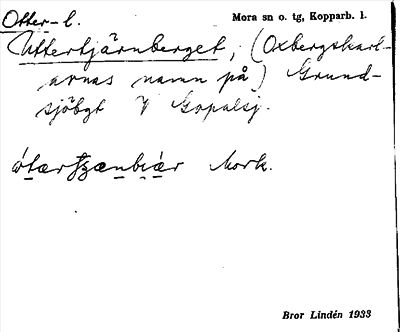 Otter-l.
Mora sn o. tg, Kopparb. l.
Uttertjärnberget, (Oxbergskarl-
arnas namn på) Grund-
sjöbgt V Gopalsj.
Mork.
Bror Lindén 1933